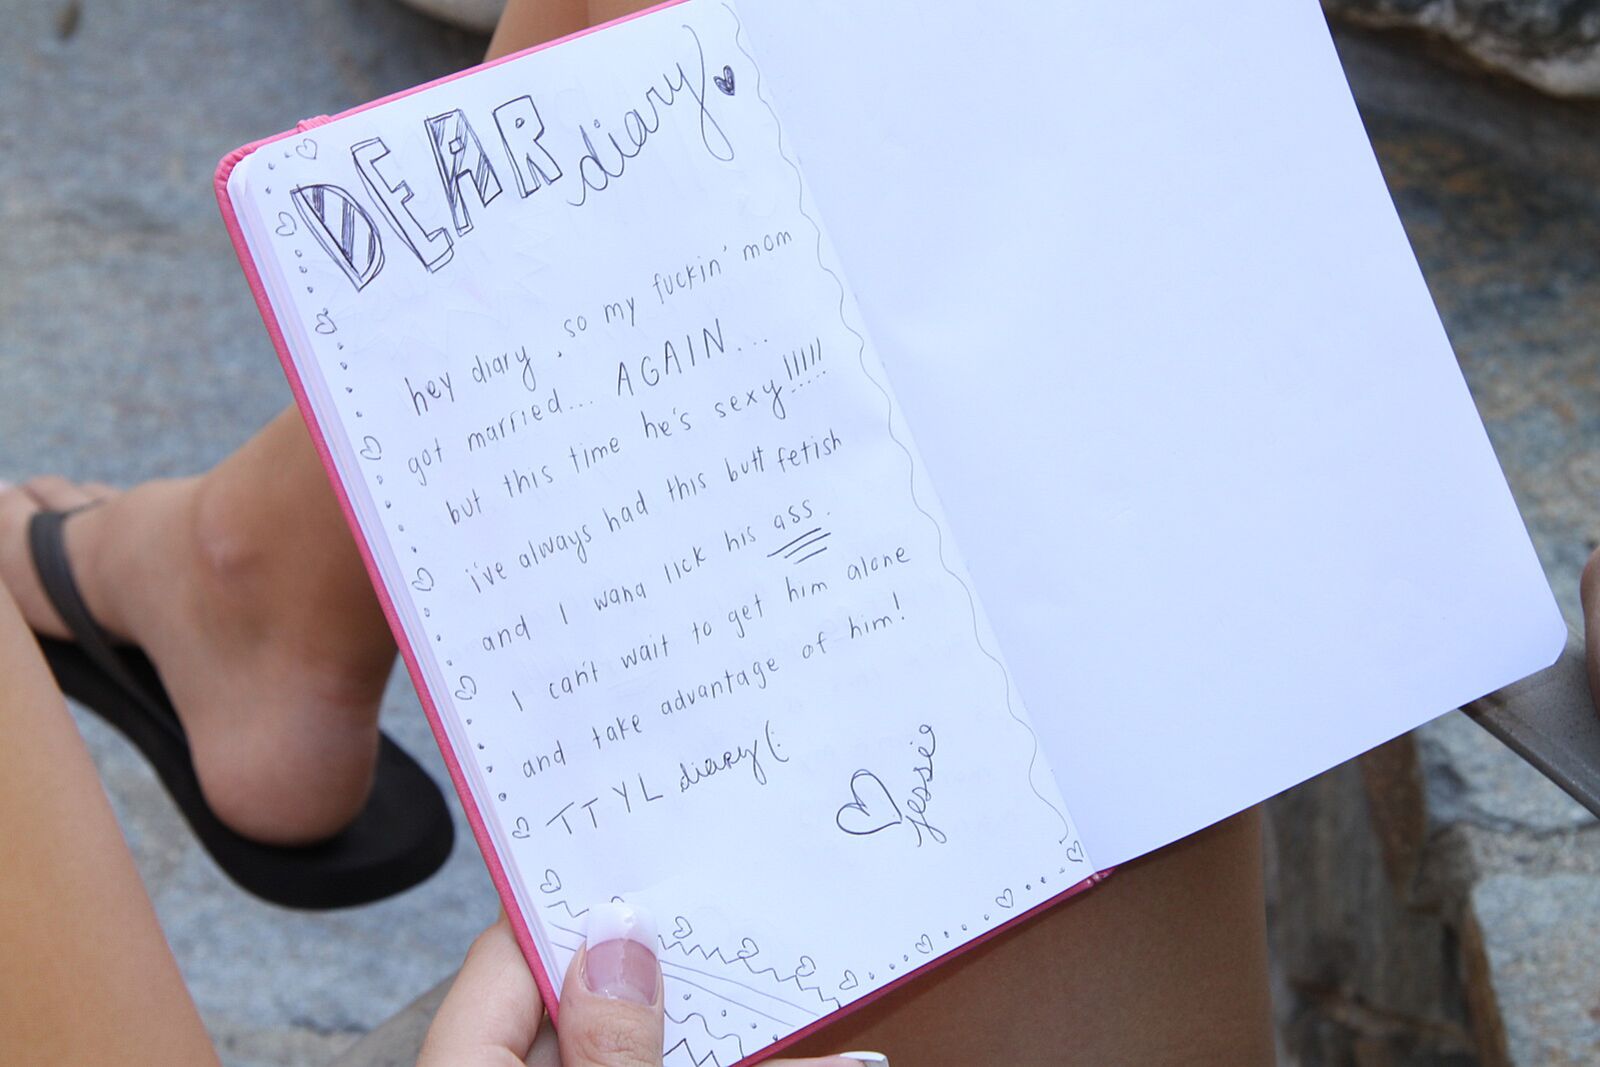 DEAR diary.
hey diary, so my fuckin' mom
got married... AGAIN...
but this time he's sexy!!!!!
i've always had this butt fetish
and I wana lick his ass.
I can't wait to get him alone
and take advantage of him!
TTYL diary(:
Jessie